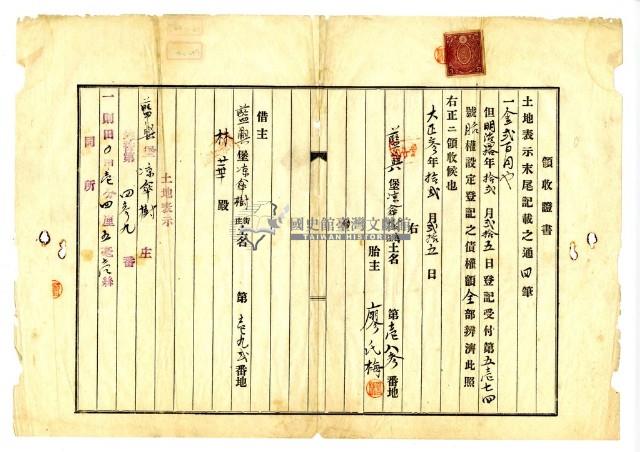 領收證書
土地表示末尾記載之通四筆
一金貳百円也
但明治 年拾貳月貳拾五日登記受付第五壱七四
號胎權設定登記之債權額全部辨濟此照
右正ニ領收候也
大正參年拾貳月貳拾五日
藍興堡凉傘樹庄土名 第壱八參番地
右
胎主 廖氏梅
借主
藍興堡凉傘樹庄土名 第 九貳番地
林華殿
土地表示
藍興堡凉傘樹庄
四參九番
一則田0甲壱分四厘五毫 絲
同所
國史館臺灣文獻館
TAIWAN HISTORICA